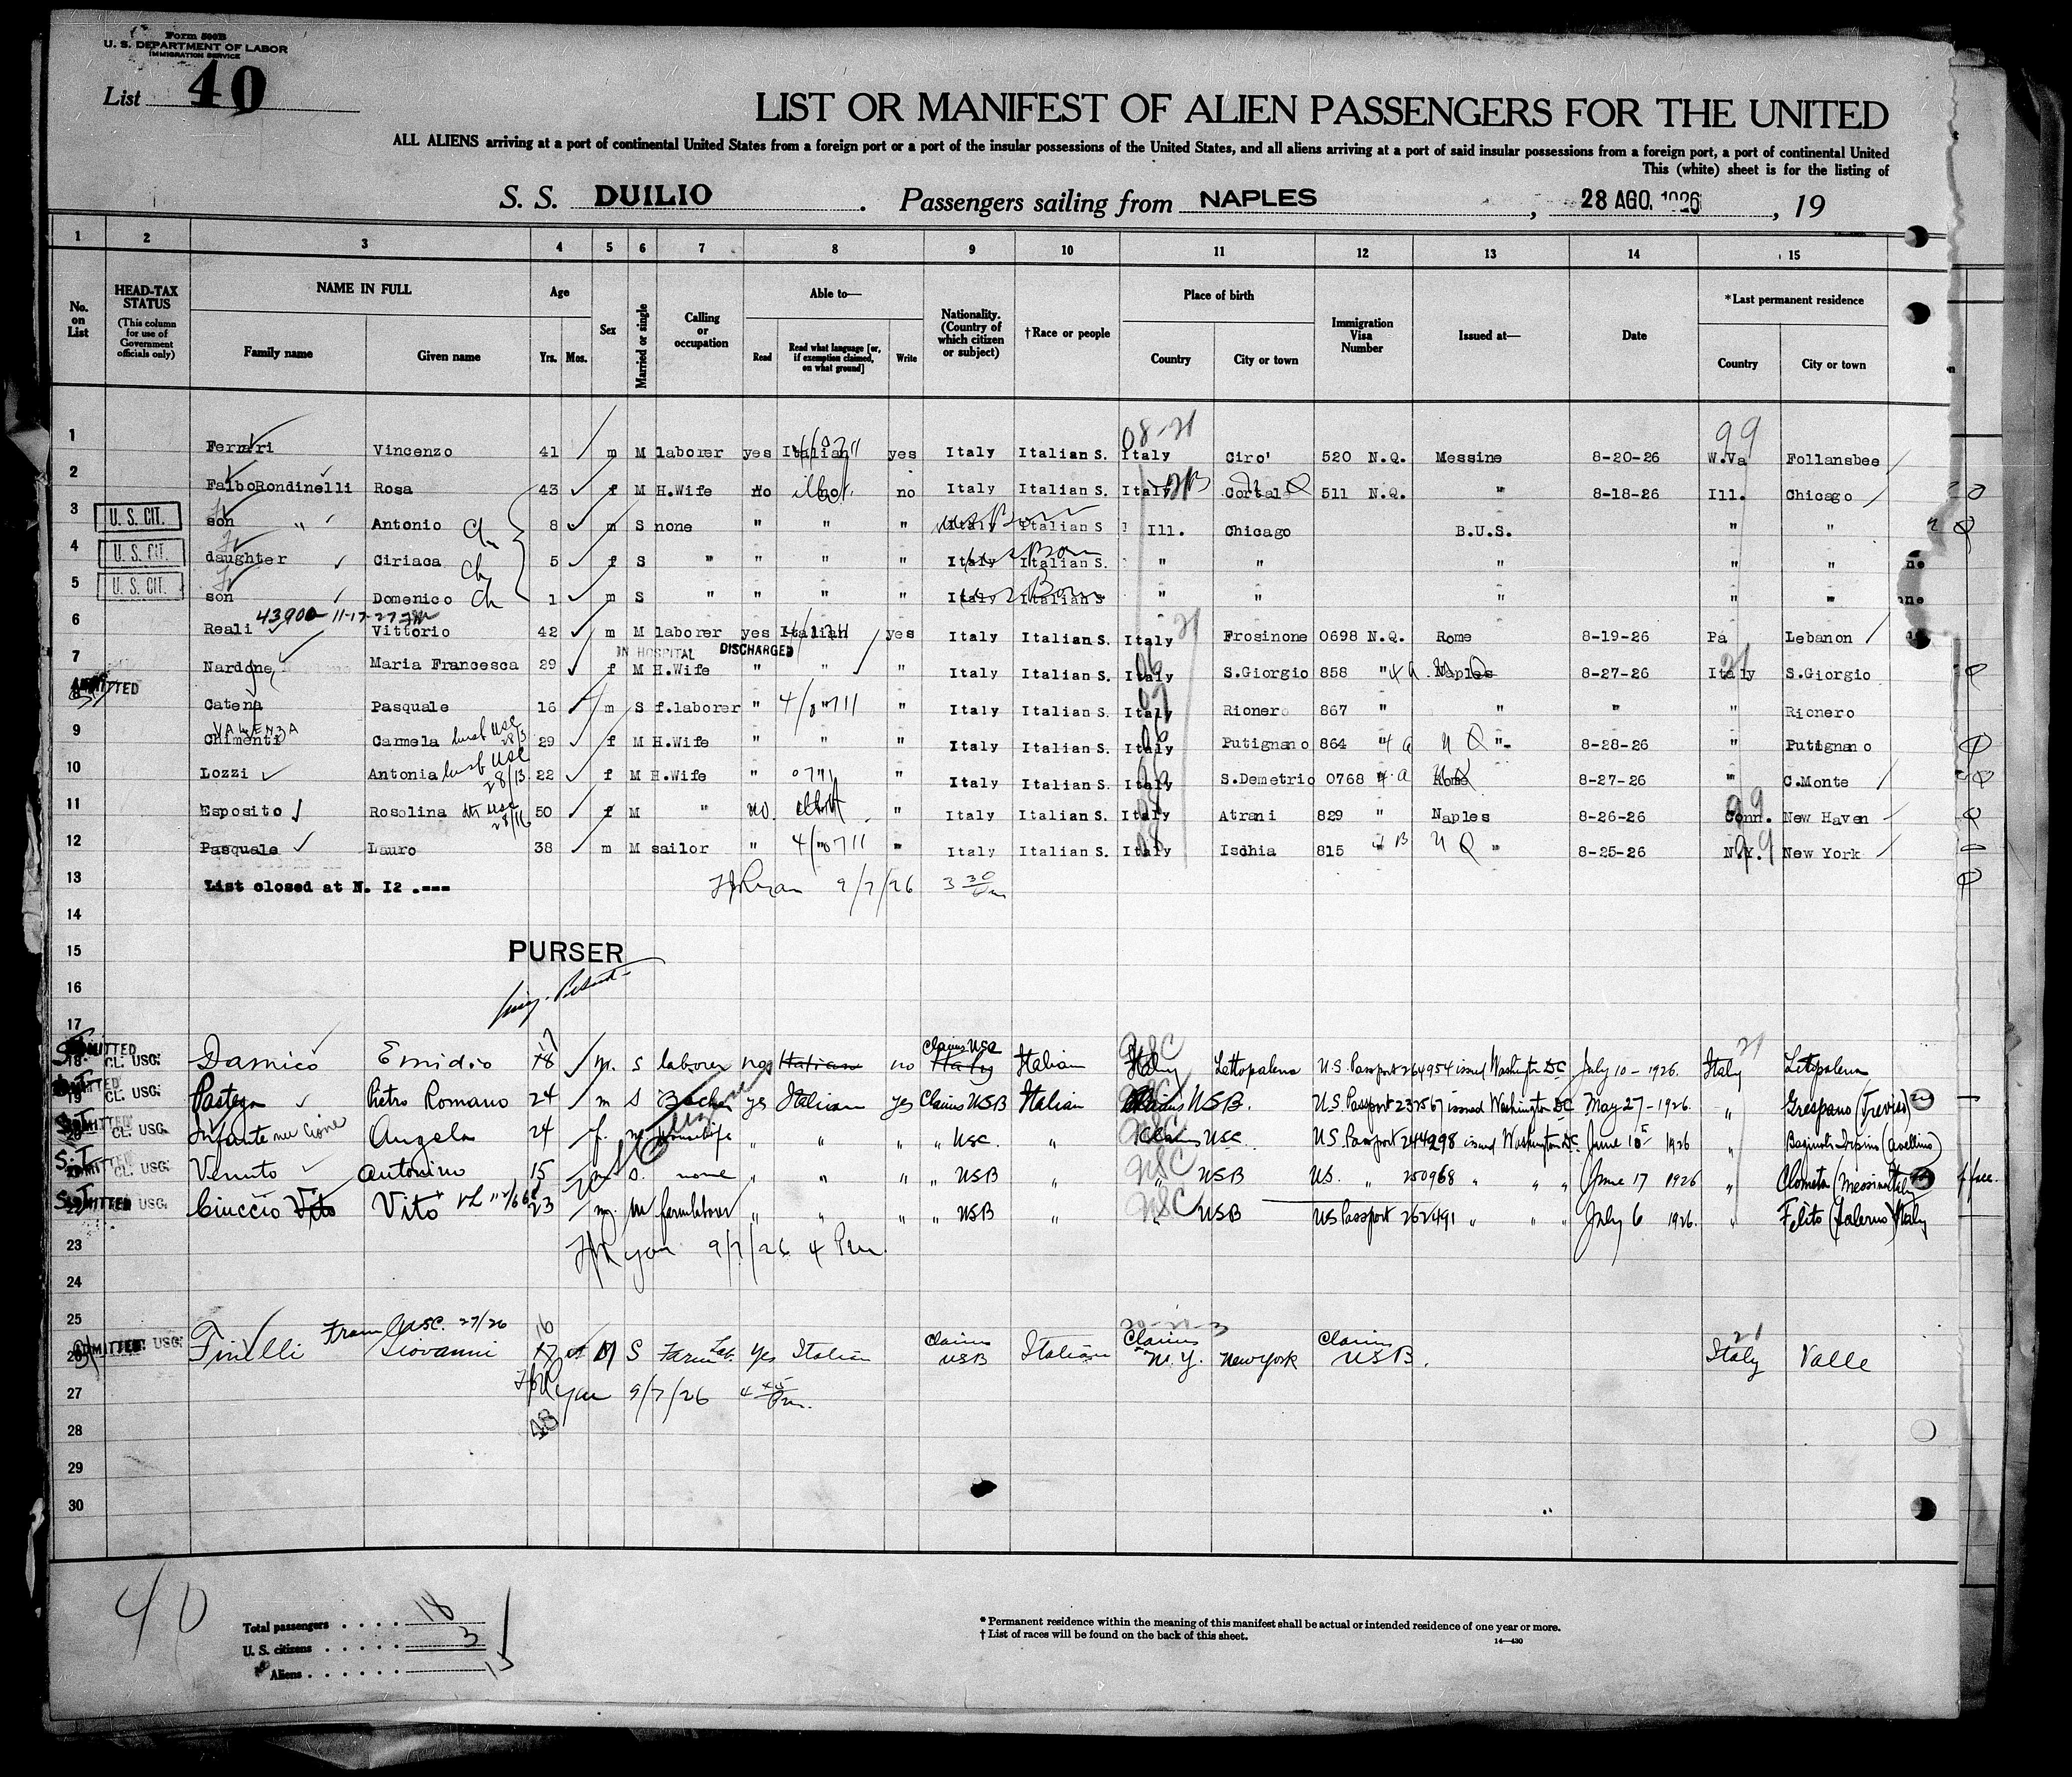 Form 500B
U. S. DEPARTMENT OF LABOR
IMMIGRATION SERVICE
List 40
LIST OR MANIFEST OF ALIEN PASSENGERS FOR THE UNITED
ALL ALIENS arriving at a port of continental United States from a foreign port or a port of the insular possessions of the United States, and all aliens arriving at a port of said insular possessions from a foreign port, a port of continental United
This (white) sheet is for the listing of
S. S. DUILIO . Passengers sailing from NAPLES , 28 AGO. 1926 , 19
1 2 3 4 5 6 7 8 9 10 11 12 13 14 15
No. on List
HEAD-TAX STATUS (This column for use of Government officials only)
NAME IN FULL
Family name Given name
Age
Yrs. Mos.
Sex
Married or single
Calling or occupation
Able to—
Read Read what language [or, if exemption claimed, on what ground] Write
Nationality. (Country of which citizen or subject)
†Race or people
Place of birth
Country City or town
Immigration Visa Number
Issued at—
Date
*Last permanent residence
Country City or town
08-21 99
1 Ferrari Vincenzo 41 m M laborer yes Italian yes Italy Italian S. Italy Ciro' 520 N.Q. Messine 8-20-26 W.Va Follansbee
2 Falbo Rondinelli Rosa 43 f M H.Wife No no Italy Italian S. Italy Cortale 511 N.Q. " 8-18-26 Ill. Chicago
3 U. S. CIT. son " Antonio Ch 8 m S none " " " Italy Italian S Ill. Chicago B.U.S. " "
4 U. S. CIT. daughter Ciriaca Ch 5 f S " " " " Italy US Born Italian S. " " " " "
5 U. S. CIT. son Domenico Ch 1 m S " " " " Italy US Born Italian S " " " " "
43900 11-17-27
6 Reali Vittorio 42 m M laborer yes Italian yes Italy Italian S. Italy Frosinone 0698 N.Q. Rome 8-19-26 Pa Lebanon
IN HOSPITAL DISCHARGED
7 Nardone Maria Francesca 29 f M H.Wife " " " Italy Italian S. Italy S.Giorgio 858 " Naples 8-27-26 Italy S.Giorgio
8 ADMITTED Catena Pasquale 16 m S f.laborer " " Italy Italian S. Italy Rionero 867 " " " " Rionero
VALENZA
9 Chimenti Carmela husb USC 28/3 29 f M H.Wife " " " Italy Italian S. Italy Putignano 864 " " 8-28-26 " Putignano
10 Lozzi Antonia husb USC 28/13 22 f M H.Wife " " Italy Italian S. Italy S.Demetrio 0768 Rome 8-27-26 " C.Monte
11 Esposito Rosolina 28/16 50 f M " no " Italy Italian S. Italy Atrani 829 " Naples 8-26-26 Conn. New Haven
12 Pasquale Lauro 38 m M sailor " " Italy Italian S. Italy Ischia 815 " " 8-25-26 N.Y. New York
13 List closed at N. I2 .--- 9/7/26 3 30
14
15 PURSER
16
17
18 ADMITTED CL. USC. Damico Emidio 18 17 m. S laborer no Italian no Claims USC Italy Italian Italy Lettopalena U.S. Passport 264954 issued Washington DC July 10 - 1926. Italy Lettopalena
19 ADMITTED CL. USC. Pastega Pietro Romano 24 m S yes Italian yes Claims USB Italian Claims USB. U.S. Passport issued Washington DC May 27-1926 "
20 ADMITTED CL. USC. Infante Angela 24 f. m housewife " " " " USC. " Claims USC U.S. Passport 244298 issued Washington DC. June 1926 "
21 ADMITTED CL. USC. Venuto Antonino 15 m S. none " " " " USB " " USB US. " 250968 " " " June 17 1926 "
22 ADMITTED USC. Ciuccio Vito Vito 23 m. M farmlaborer " " " " USB " " USB US Passport 262491 " " " July 6 1926. " Felito (Salerno) Italy
23 9/7/26 4 Pm
24
25 From USC. 27/26 16
26 ADMITTED USC. Finelli Giovanni 17 M S Farm Lab. Yes Italian Claims USB Italian Claims N.Y. New York Claims USB. Italy Valle
27 9/7/26 4 45 Pm.
28
29
30
40
Total passengers . . . . 18
U. S. citizens . . . . . 3
Aliens . . . . . . 15
* Permanent residence within the meaning of this manifest shall be actual or intended residence of one year or more.
† List of races will be found on the back of this sheet.
14—430